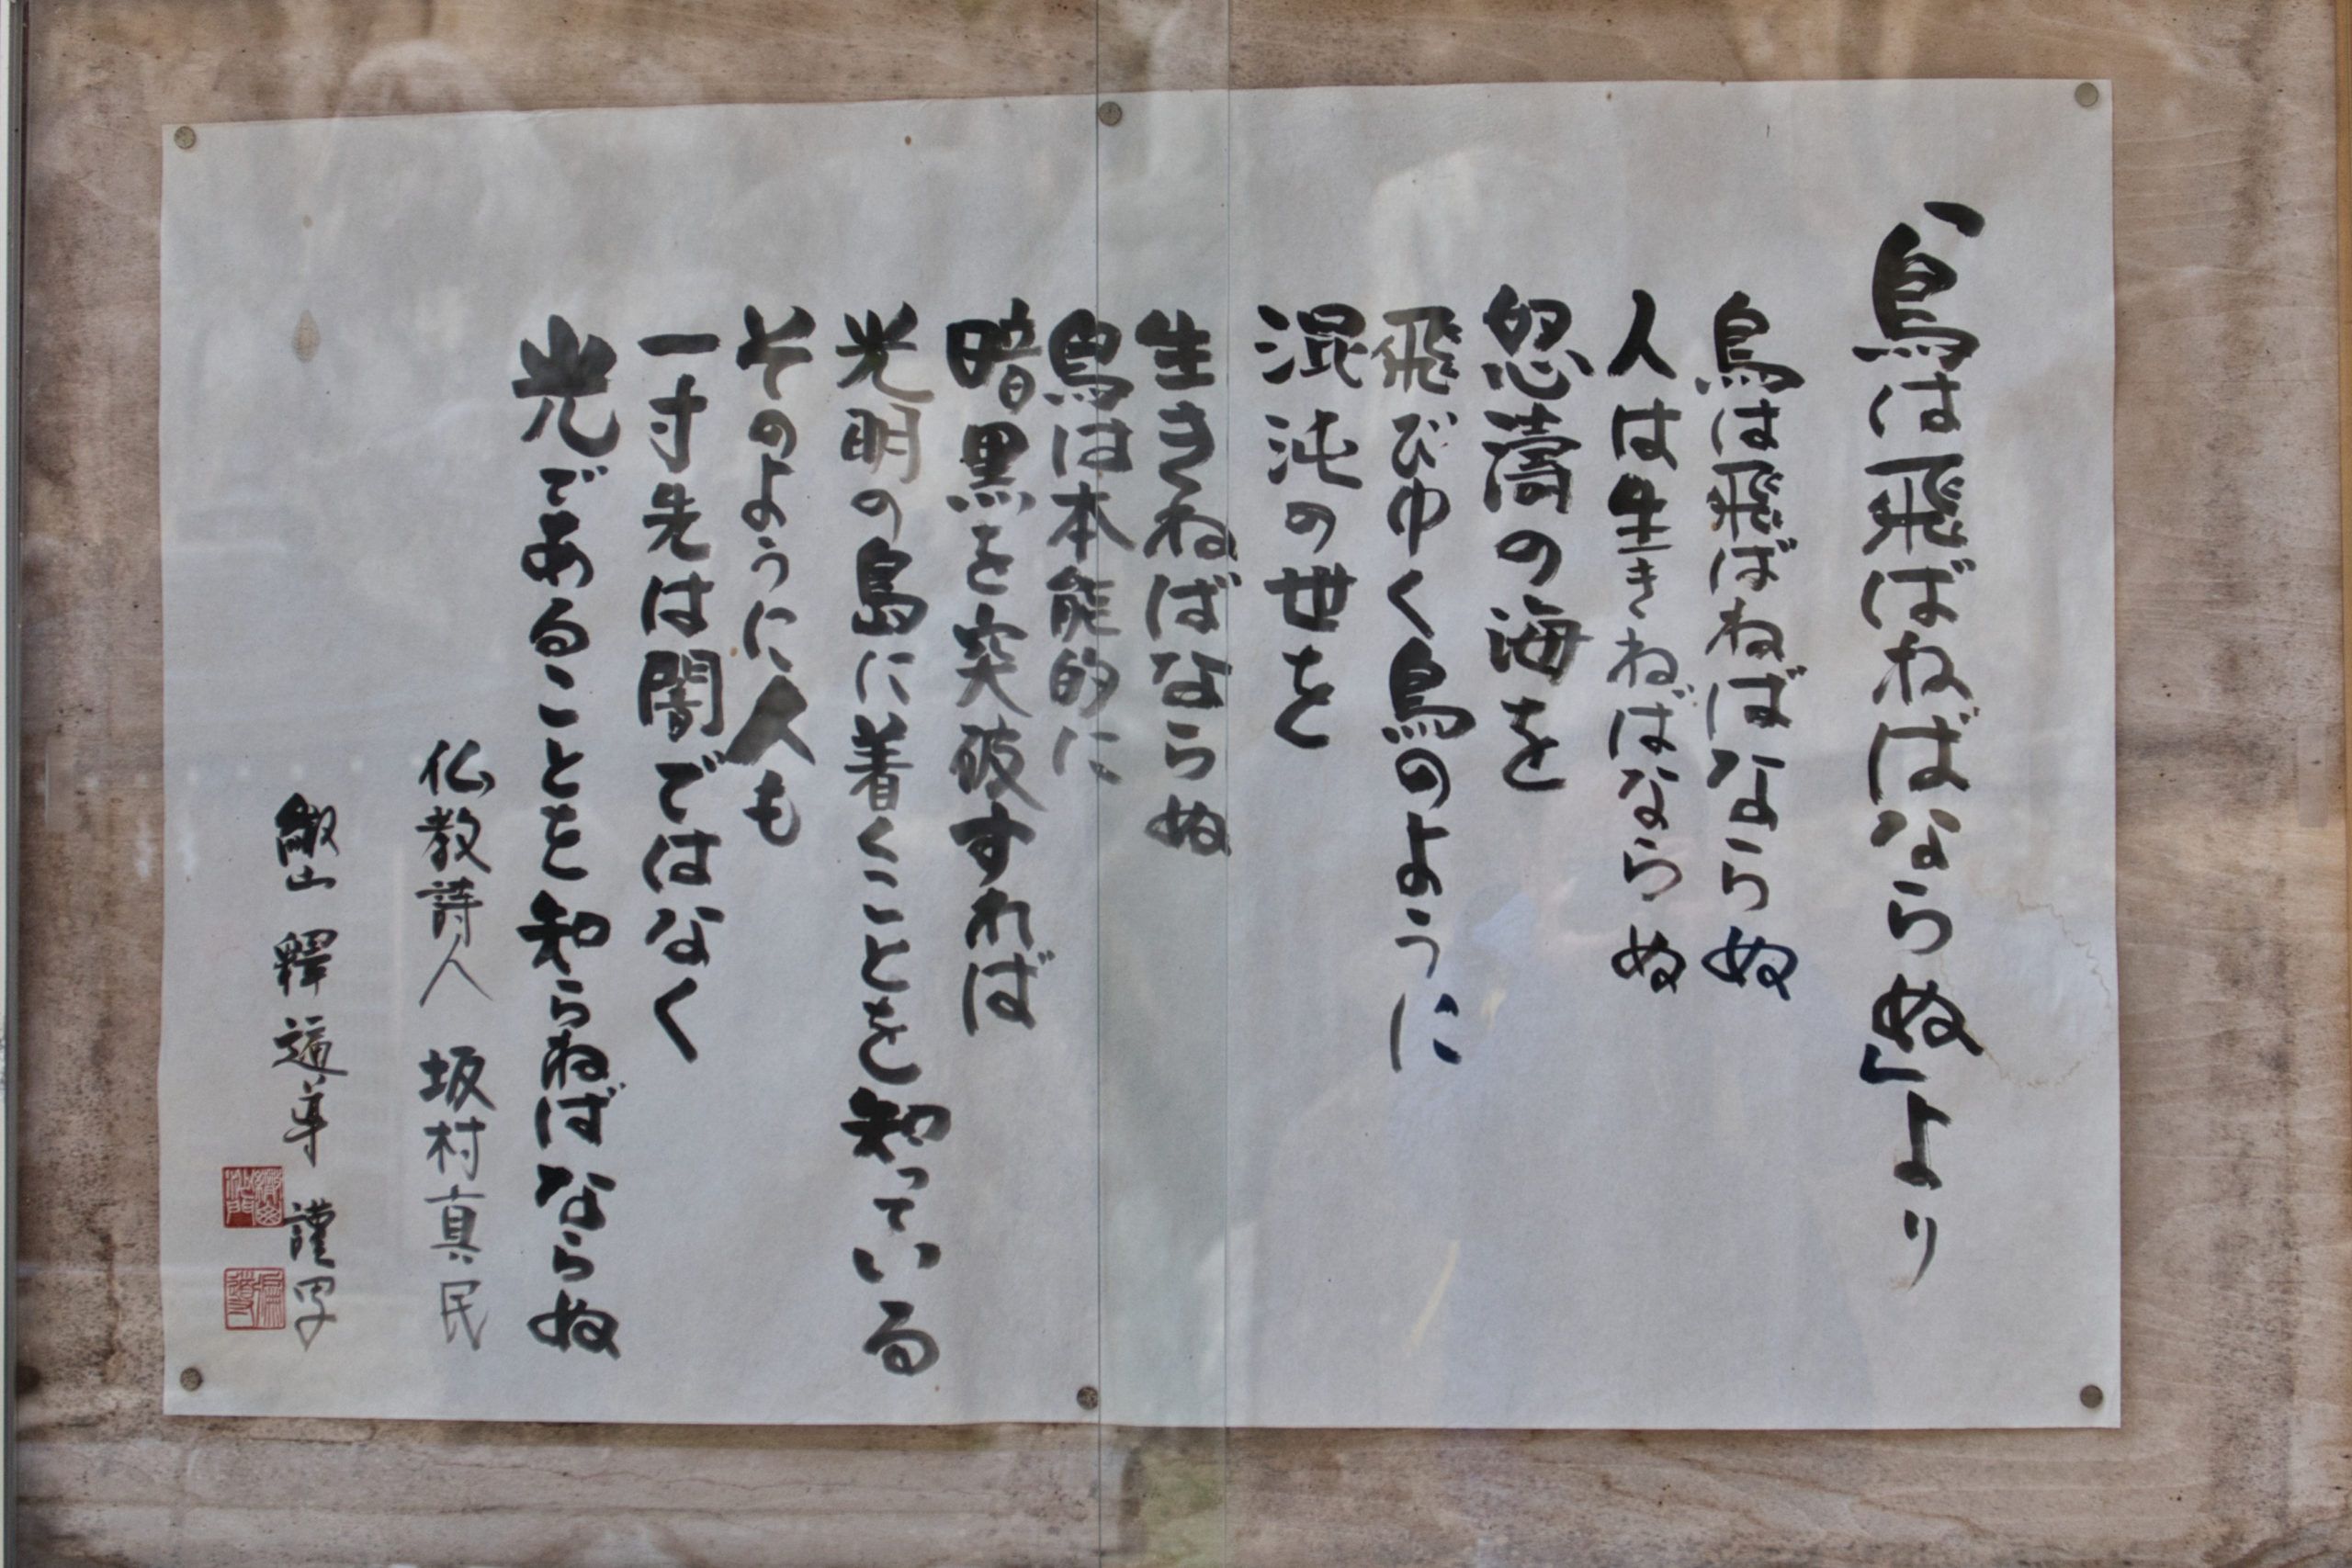 「鳥は飛ばねばならぬ」より
鳥は飛ばねばならぬ
人は生きねばならぬ
怒濤の海を
飛びゆく鳥のように
混沌の世を
生きねばならぬ
鳥は本能的に
暗黒を突破すれば
光明の島に着くことを知っている
そのように人も
一寸先は闇ではなく
光であることを知らねばならぬ
仏教詩人 坂村真民
叡山 釋 道 謹写